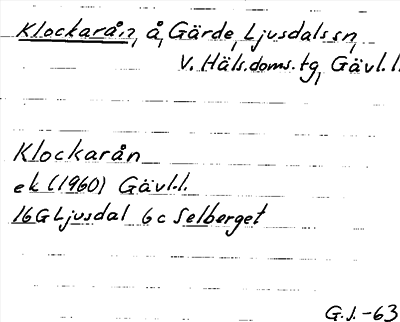 Klockarån, å, Gärde, Ljusdals sn,
V. Häls. doms. tg, Gävl.l.
Klockarån
ek (1960) Gävl.l.
16G Ljusdal 6c Selberget
G.J.-63